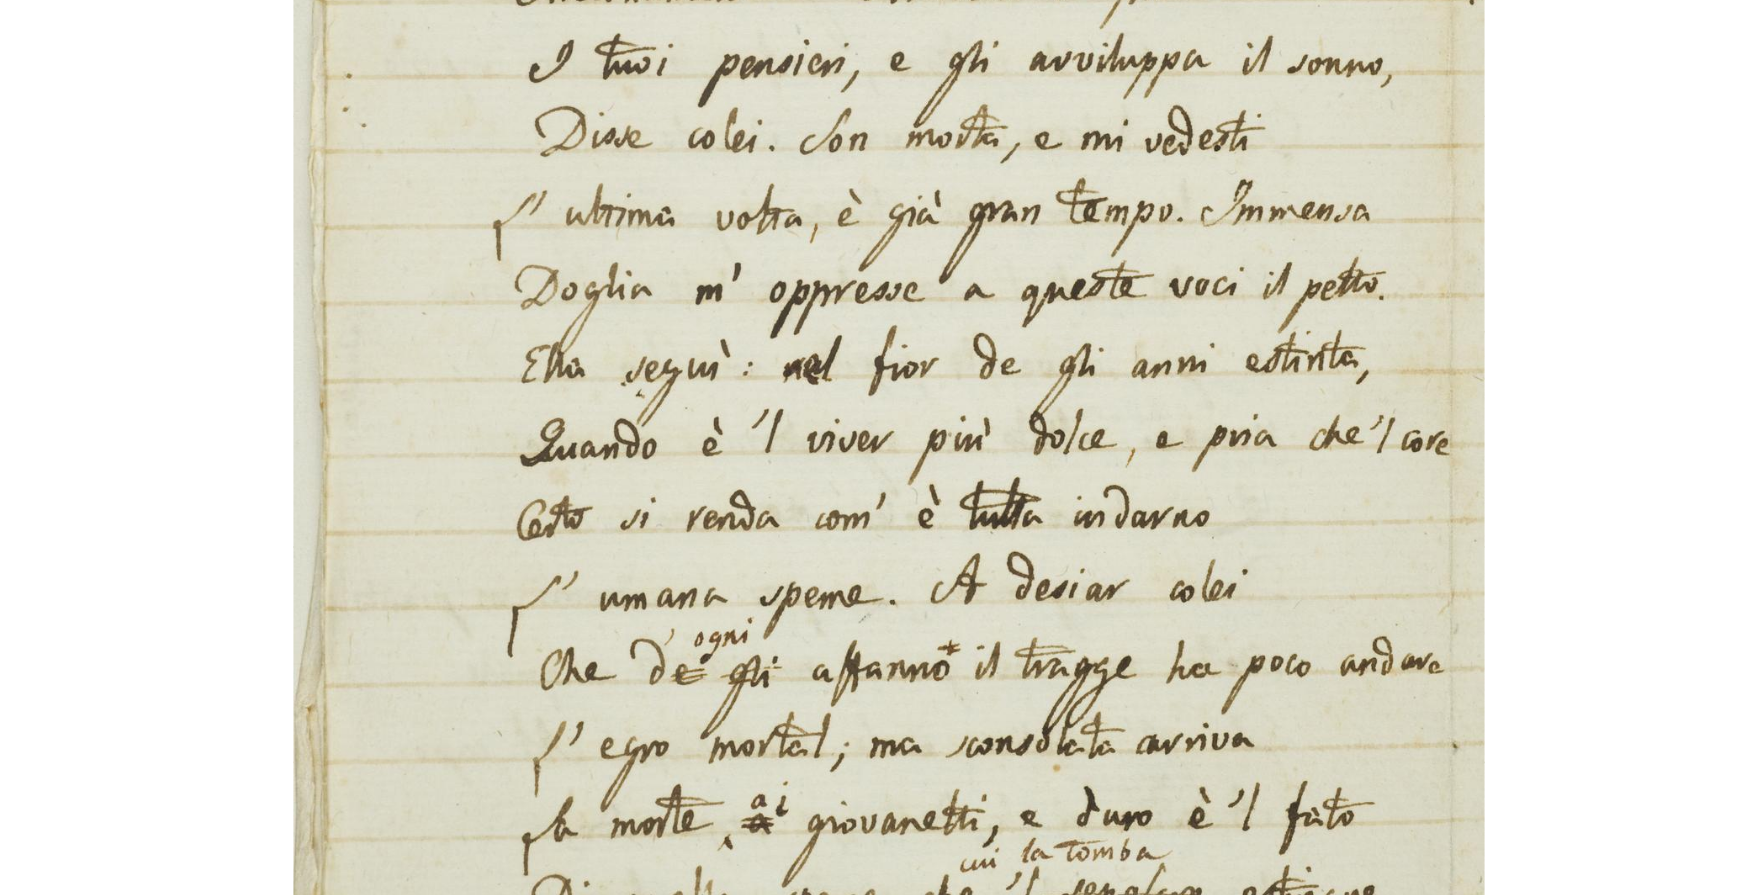 I tuoi pensieri, e gli avviluppa il sonno,
Disse colei. Son morta, e mi vedesti
L' ultima volta, è già gran tempo. Immensa
Doglia m' oppresse a queste voci il petto.
Ella seguì: nel fior de gli anni estinta,
Quando è 'l viver più dolce, e pria che 'l core
Certo si renda com' è tutta indarno
L' umana speme. A desiar colei
ogni
Che de gli affanno* il tragge ha poco andare
L' egro mortal; ma sconsolata arriva
La morte ai giovanetti, e duro è 'l fato
cui la tomba